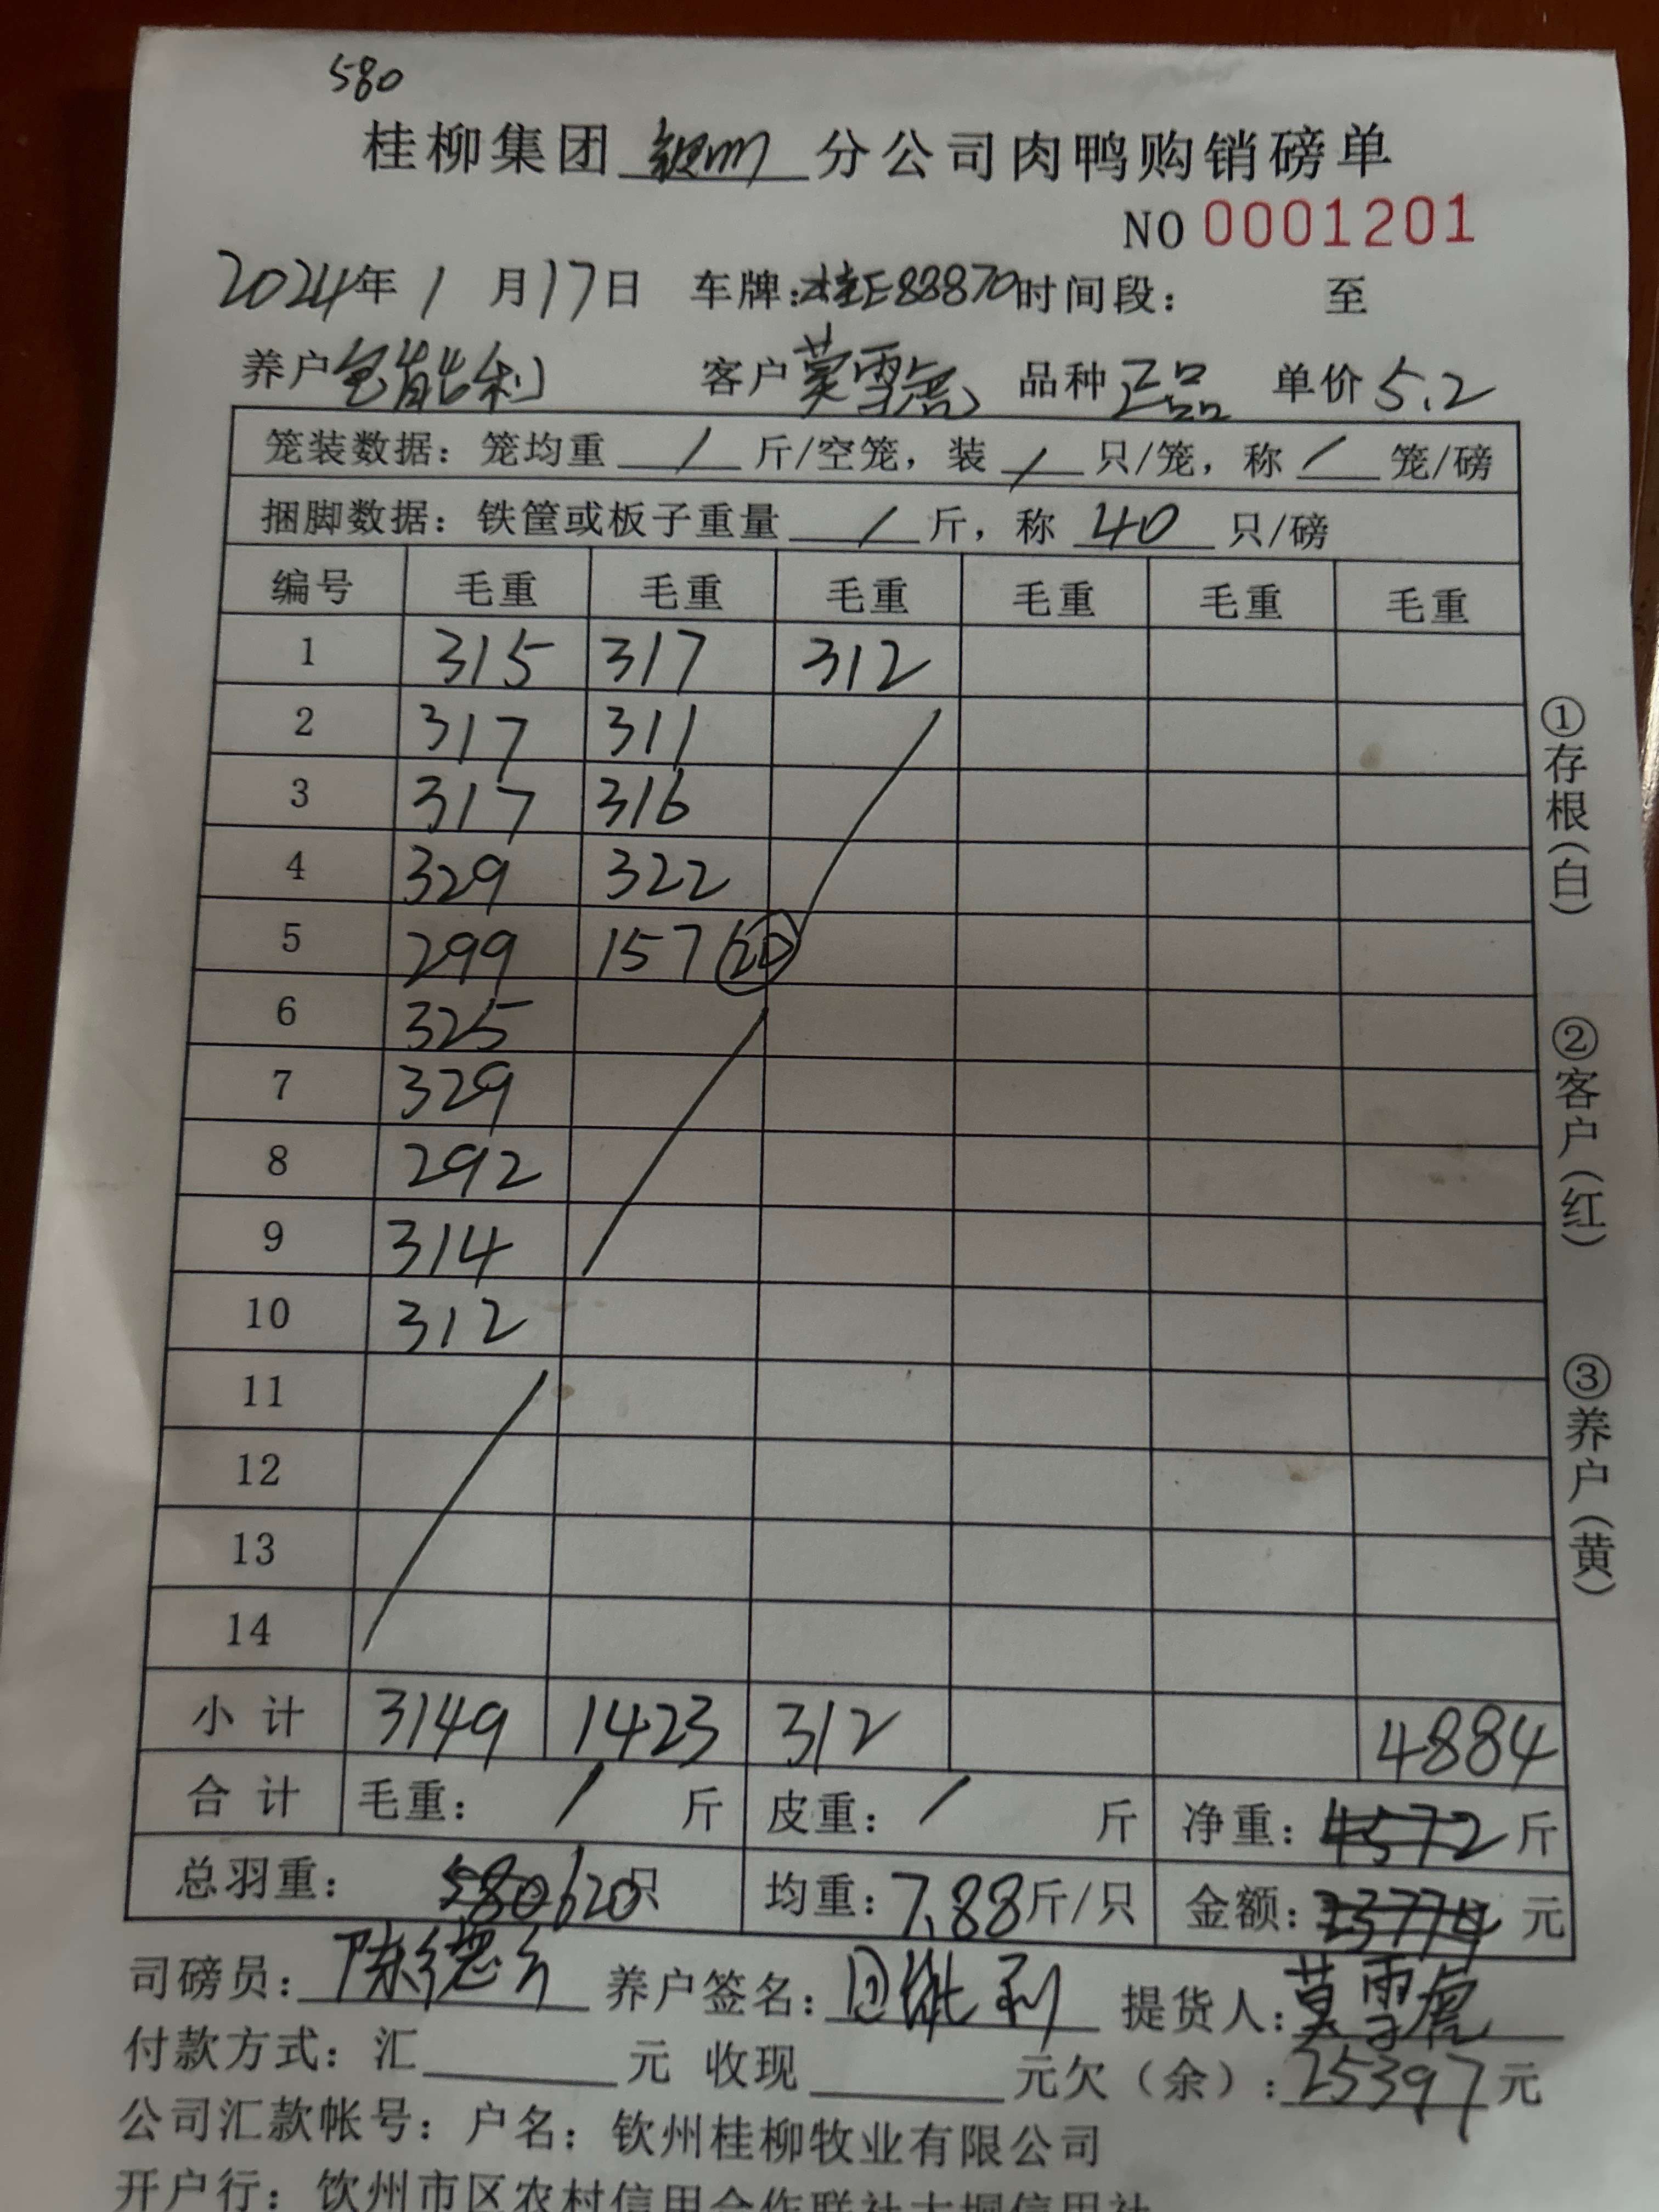 580
桂柳集团 钦州 分公司肉鸭购销磅单
NO 0001201
2024年 1 月 17日 车牌:桂E88870 时间段: 至
养户 包能利 客户 莫雪虎 品种 正品 单价 5.2
笼装数据: 笼均重 / 斤/空笼, 装 / 只/笼, 称 / 笼/磅
捆脚数据: 铁筐或板子重量 / 斤, 称 40 只/磅
编号 毛重 毛重 毛重 毛重 毛重 毛重
1 315 317 312
2 317 311
3 317 316
4 329 322
5 299 157 20
6 325
7 329
8 292
9 314
10 312
11
12
13
14
小 计 3149 1423 312 4884
合 计 毛重: / 斤 皮重: / 斤 净重: 4572 斤
总羽重: 580 620只 均重: 7.88斤/只 金额: 23774 元
司磅员: 陈德 养户签名: 利 提货人: 莫雪虎
付款方式: 汇 元 收现 元欠(余): 25397 元
公司汇款帐号: 户名: 钦州桂柳牧业有限公司
开户行: 钦州市区农村信用合作联社大垌信用社
①存根(白)
②客户(红)
③养户(黄)